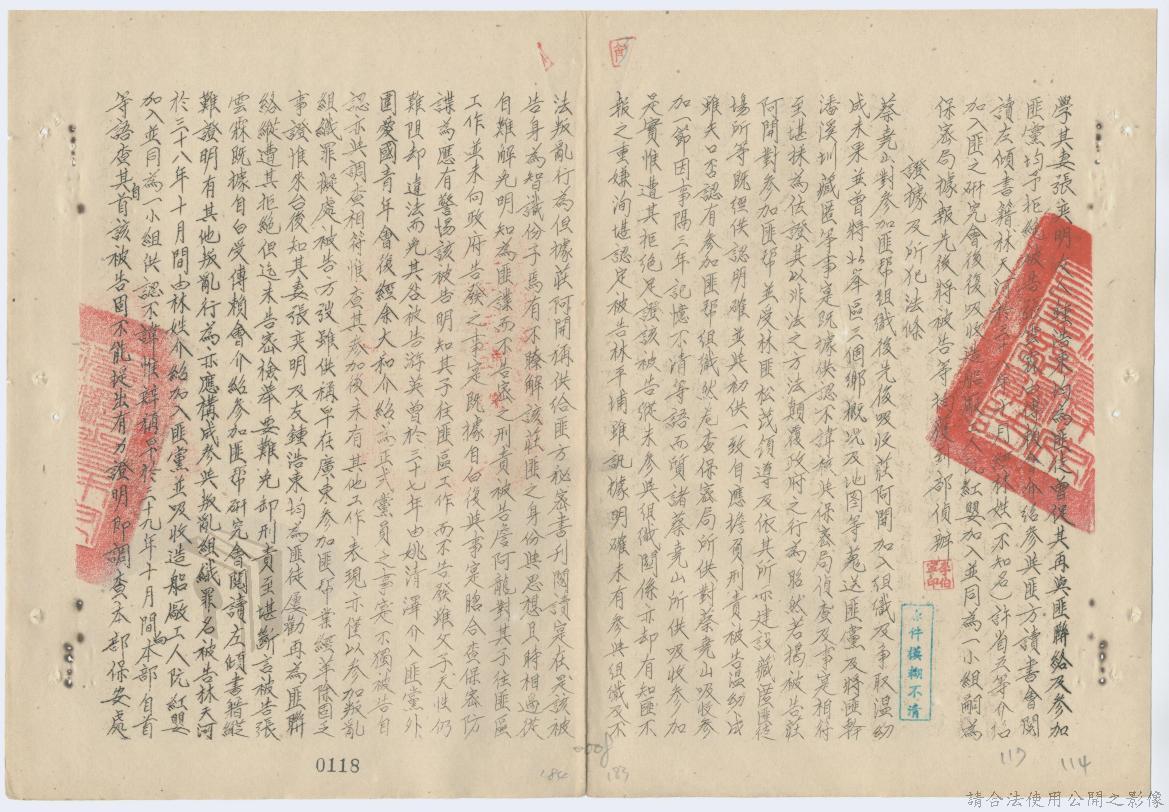 學其妻張奕明友人鍾浩東均為匪徒會促其再與匪聯絡及參加
匪黨均予拒絕被告張雲霖由傅賴會介紹參與匪方讀書會閱
讀左傾書籍林天河於三十八年十月由林姓(不知名)許省五等介紹
加入匪之研究會後復吸收造船廠工人阮紅嬰加入並同為一小組嗣為
保密局據報先後將被告等捕獲解部偵辦
證據及所犯法條
蔡堯山對參加匪幫組織後先後吸收莊阿開加入組織及爭取溫幼
成未果並曾將北峯區三個鄉概況及地圖等蒐送匪黨及將匪幹
潘溪圳藏匿等事實既據供認不諱核與保密局偵查及事實相符
至堪採為佐證其以非法之方法顛覆政府之行為昭然若揭被告莊
阿開對參加匪幫並受林匪松茂領導及依其所示建設藏匿匪徒
場所等既經供認明確並與初供一致自應擔負刑責被告溫幼成
雖矢口否認有參加匪幫組織然卷查保密局所供對蔡堯山吸收參
加一節因事隔三年記憶不清等語而質諸蔡堯山所供吸收參加
是實惟遭其拒絕足證該被告從未參與組織關係亦却有知匪不
報之重嫌洵堪認定被告林平埔雖訊據明確未有參與組織及不
法叛亂行為但據莊阿開稱供給匪方秘密書刊閱讀定在是該被
告身為智識份子焉有不瞭解該莊匪之身份與思想且時相過從
自難解免明知為匪諜而不告密之刑責被告詹阿龍對其子往匪區
工作並未向政府告發之事實既據自白復與事實昭合查保密防
諜為應有警惕該被告明知其子往匪區工作而不告發雖父子天性仍
難阻却違法而免其咎被告游英曾於三十七年由姚清澤介入匪黨外
圍愛國青年會後經余大和介紹為正式黨員之事實不獨被告自
認亦與調查相符惟查其參加後未有其他工作表現亦僅以參加叛亂
組織罪擬處被告方弢雖供稱早在廣東參加匪幫業經革除固之
事證惟來台後知其妻張奕明及友鍾浩東均為匪徒屢勸再為匪聯
絡縱遭其拒絕但迄未告密檢舉要難免却刑責至堪斷言被告張
雲霖既據自白受傅賴會介紹參加匪幫研究會閱讀左傾書籍縱
難證明有其他叛亂行為亦應構成參與叛亂組織罪名被告林天河
於三十八年十月間由林姓介紹加入匪黨並吸收造船廠工人阮紅嬰
加入並同為一小組供認不諱惟辯稱早於三十九年十月間向本部自首
等語查其自首該被告固不能提出有力證明即調查本部保安處
李伯宣印
原件模糊不清
0118
0008
184
183
117
114
請合法使用公開之影像